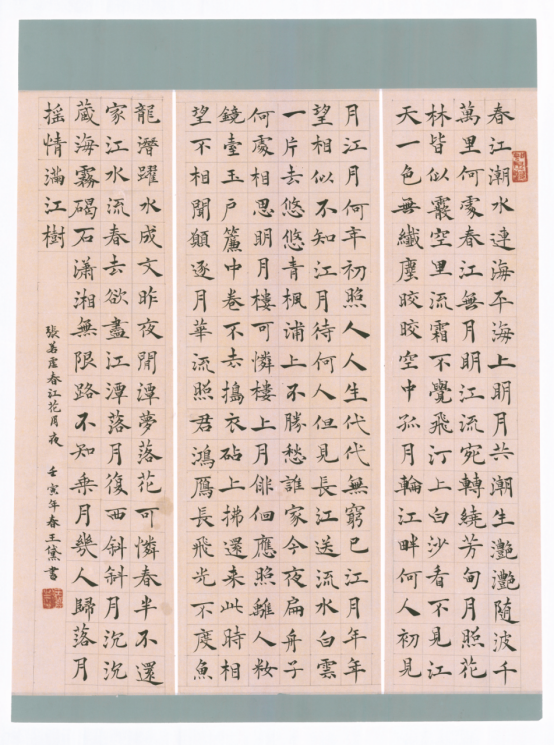 春江潮水連海平海上明月共潮生灧灧随波千
萬里何處春江無月明江流宛轉繞芳甸月照花
林皆似霰空里流霜不覺飛汀上白沙看不見江
天一色無纖塵皎皎空中孤月輪江畔何人初見
月江月何年初照人人生代代無窮已江月年年
望相似不知江月待何人但見長江送流水白雲
一片去悠悠青楓浦上不勝愁誰家今夜扁舟子
何處相思明月樓可憐樓上月俳佪應照離人粧
鏡臺玉戶簾中卷不去搗衣砧上拂還来此時相
望不相聞願逐月華流照君鴻鴈長飛光不度魚
龍潛躍水成文昨夜閒潭夢落花可憐春半不還
家江水流春去欲盡江潭落月復西斜斜月沉沉
藏海霧碣石瀟湘無限路不知乘月幾人歸落月
摇情滿江樹
張若虛春江花月夜 壬寅年春王黛書